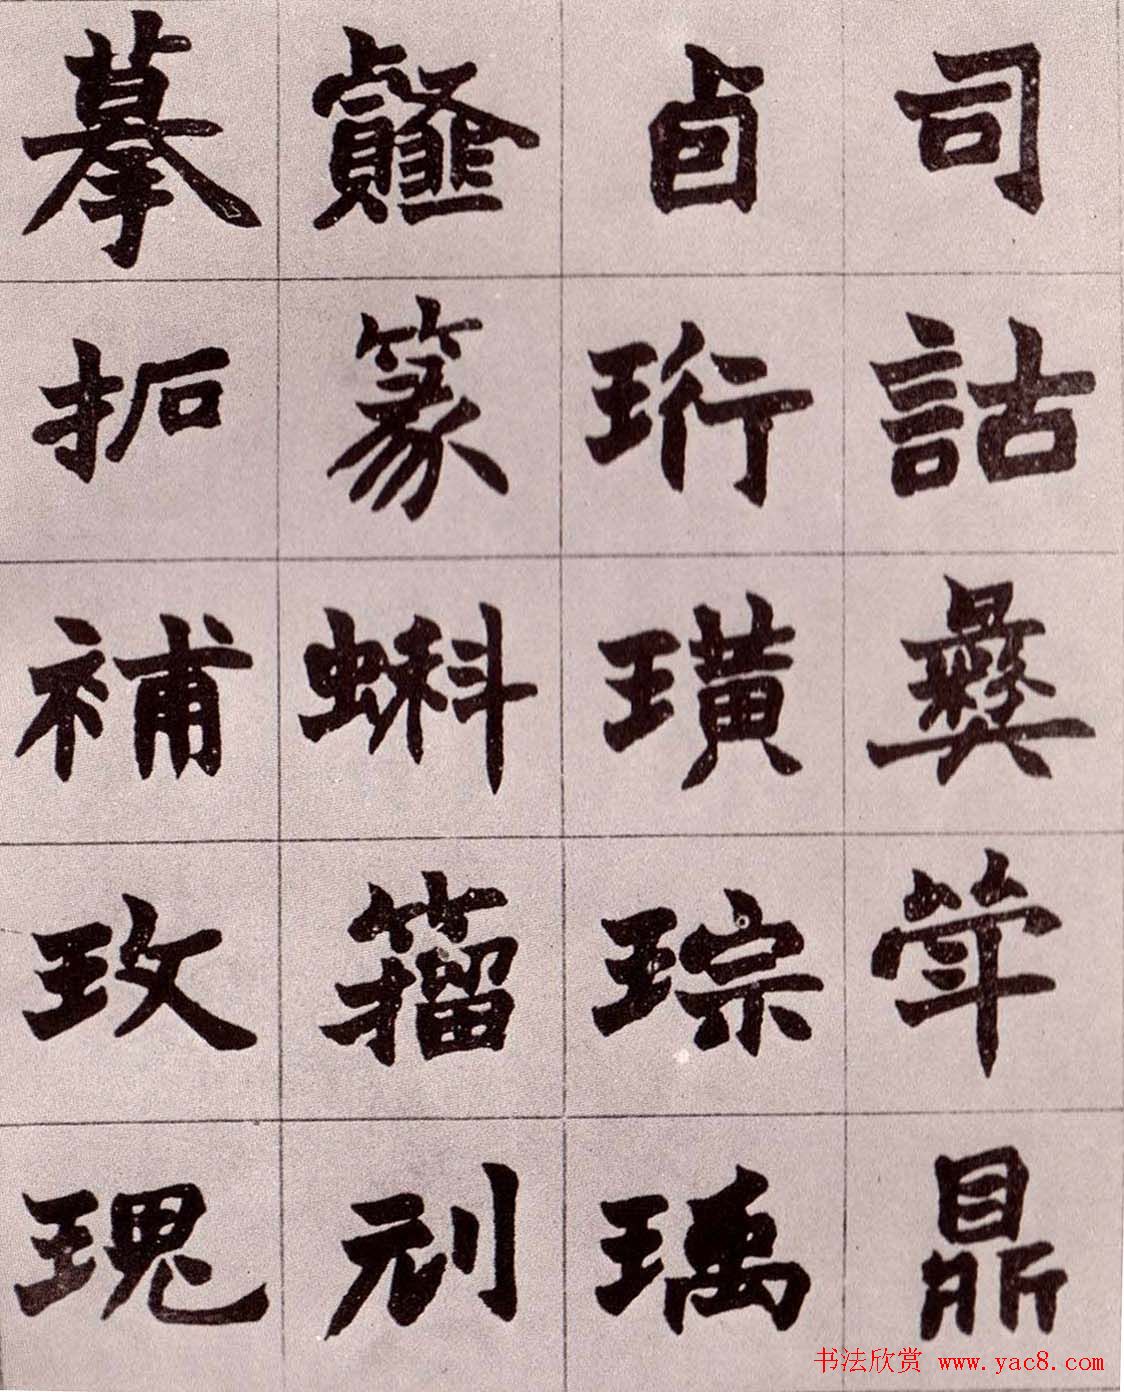 司詁彝斝鼎
卣珩璜琮瑀
篆蝌籀刓
摹拓補玫瑰
书法欣赏 www.yac8.com